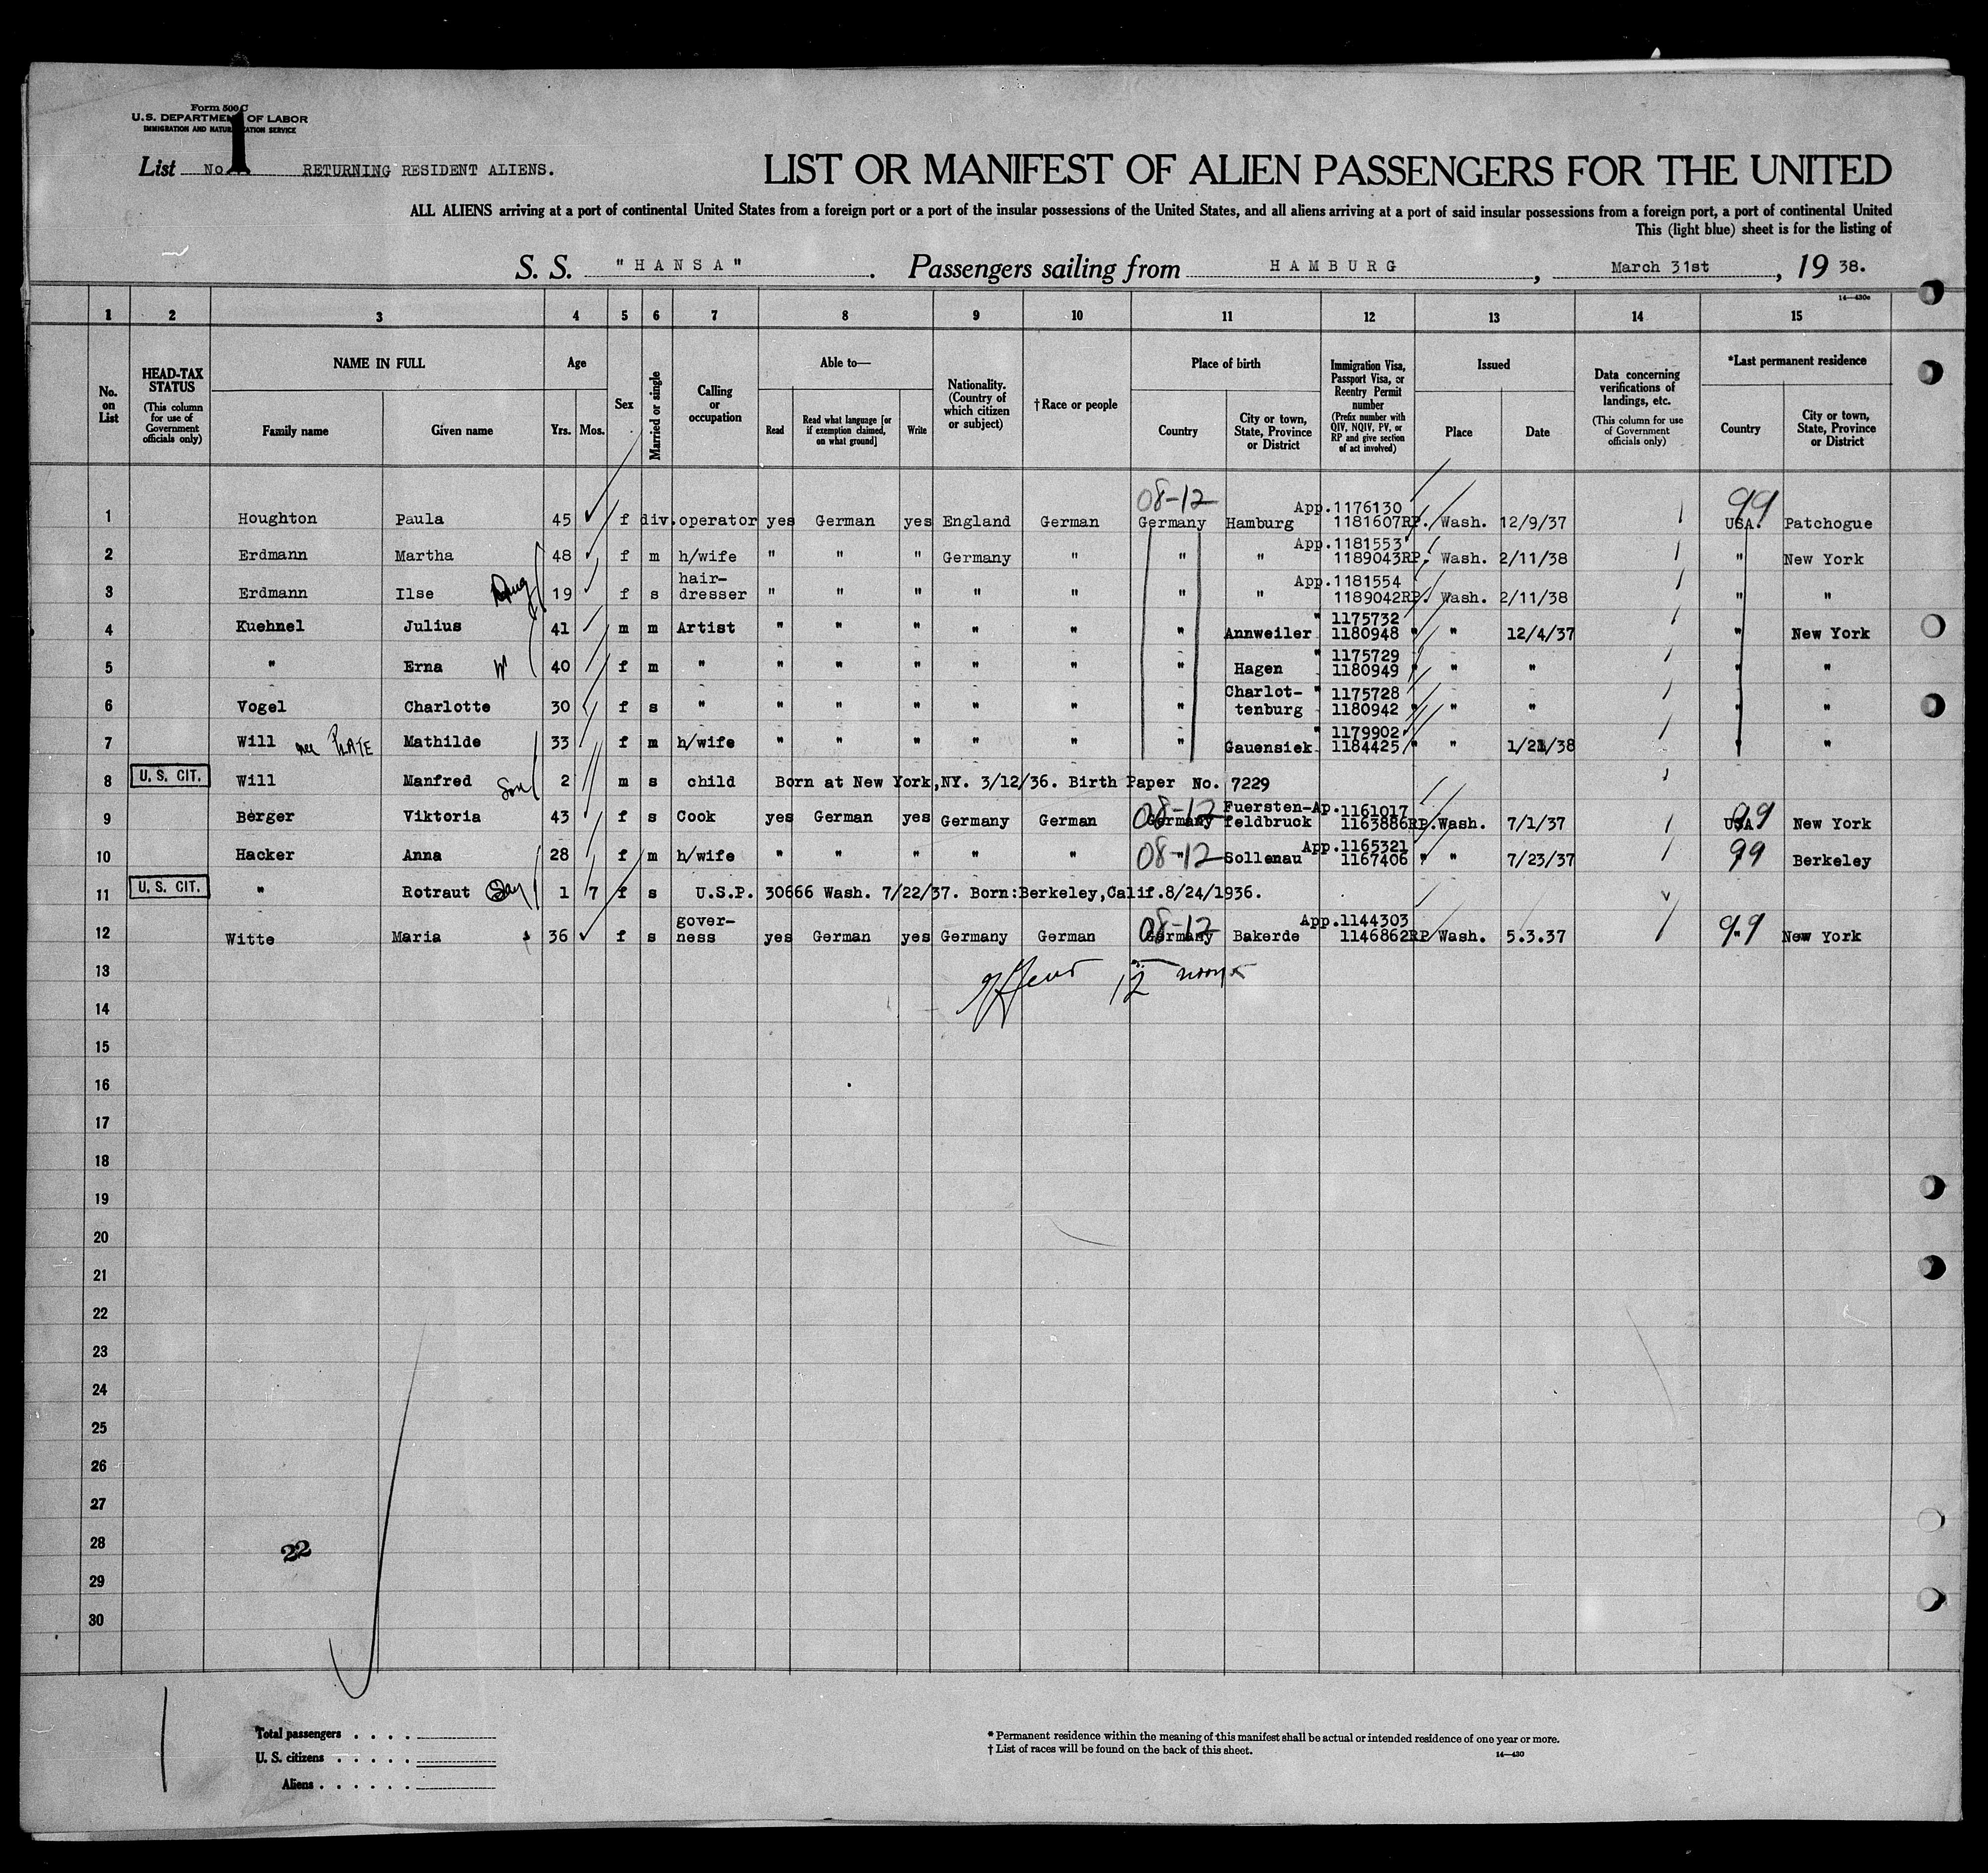 Form 500 C
U.S. DEPARTMENT OF LABOR
IMMIGRATION AND NATURALIZATION SERVICE
List No 1 RETURNING RESIDENT ALIENS.
LIST OR MANIFEST OF ALIEN PASSENGERS FOR THE UNITED
ALL ALIENS arriving at a port of continental United States from a foreign port or a port of the insular possessions of the United States, and all aliens arriving at a port of said insular possessions from a foreign port, a port of continental United
This (light blue) sheet is for the listing of
S. S. "HANSA". Passengers sailing from HAMBURG, March 31st, 19 38.
14—430c
1 2 3 4 5 6 7 8 9 10 11 12 13 14 15
No. on List
HEAD-TAX STATUS (This column for use of Government officials only)
NAME IN FULL
Family name Given name
Age
Yrs. Mos.
Sex
Married or single
Calling or occupation
Able to—
Read Read what language [or if exemption claimed, on what ground] Write
Nationality. (Country of which citizen or subject)
†Race or people
Place of birth
Country City or town, State, Province or District
Immigration Visa, Passport Visa, or Reentry Permit number (Prefix number with QIV, NQIV, PV, or RP and give section of act involved)
Issued
Place Date
Data concerning verifications of landings, etc. (This column for use of Government officials only)
*Last permanent residence
Country City or town, State, Province or District
08-12 App.1176130 99
1 Houghton Paula 45 f div. operator yes German yes England German Germany Hamburg 1181607RP. Wash. 12/9/37 USA. Patchogue
App.1181553
2 Erdmann Martha 48 f m h/wife " " " Germany " " " 1189043RP. Wash. 2/11/38 " New York
hair- App.1181554
3 Erdmann Ilse Daug 19 f s dresser " " " " " " " 1189042RP. Wash. 2/11/38 " "
" 1175732
4 Kuehnel Julius 41 m m Artist " " " " " " Annweiler 1180948 " " 12/4/37 " New York
" 1175729
5 " Erna W 40 f m " " " " " " " Hagen 1180949 " " " " "
Charlot- " 1175728
6 Vogel Charlotte 30 f s " " " " " " " tenburg 1180942 " " " " "
" 1179902
7 Will nee PLATE Mathilde 33 f m h/wife " " " " " " Gauensiek 1184425 " " 1/21/38 " "
8 U. S. CIT. Will Manfred Son 2 m s child Born at New York,NY. 3/12/36. Birth Paper No. 7229
08-12 Fuersten-Ap.1161017 99
9 Berger Viktoria 43 f s Cook yes German yes Germany German Germany feldbruck 1163886RP.Wash. 7/1/37 USA New York
08-12 App.1165321 99
10 Hacker Anna 28 f m h/wife " " " " " " Sollenau 1167406 " " 7/23/37 Berkeley
11 U. S. CIT. " Rotraut 1 7 f s U.S.P. 30666 Wash. 7/22/37. Born:Berkeley,Calif.8/24/1936.
gover- 08-12 App.1144303 99
12 Witte Maria 36 f s ness yes German yes Germany German Germany Bakerde 1146862RP Wash. 5.3.37 " New York
13
12
14
15
16
17
18
19
20
21
22
23
24
25
26
27
28
22
29
30
Total passengers . . . .
U. S. citizens . . . . .
Aliens . . . . . .
* Permanent residence within the meaning of this manifest shall be actual or intended residence of one year or more.
† List of races will be found on the back of this sheet.
14—430